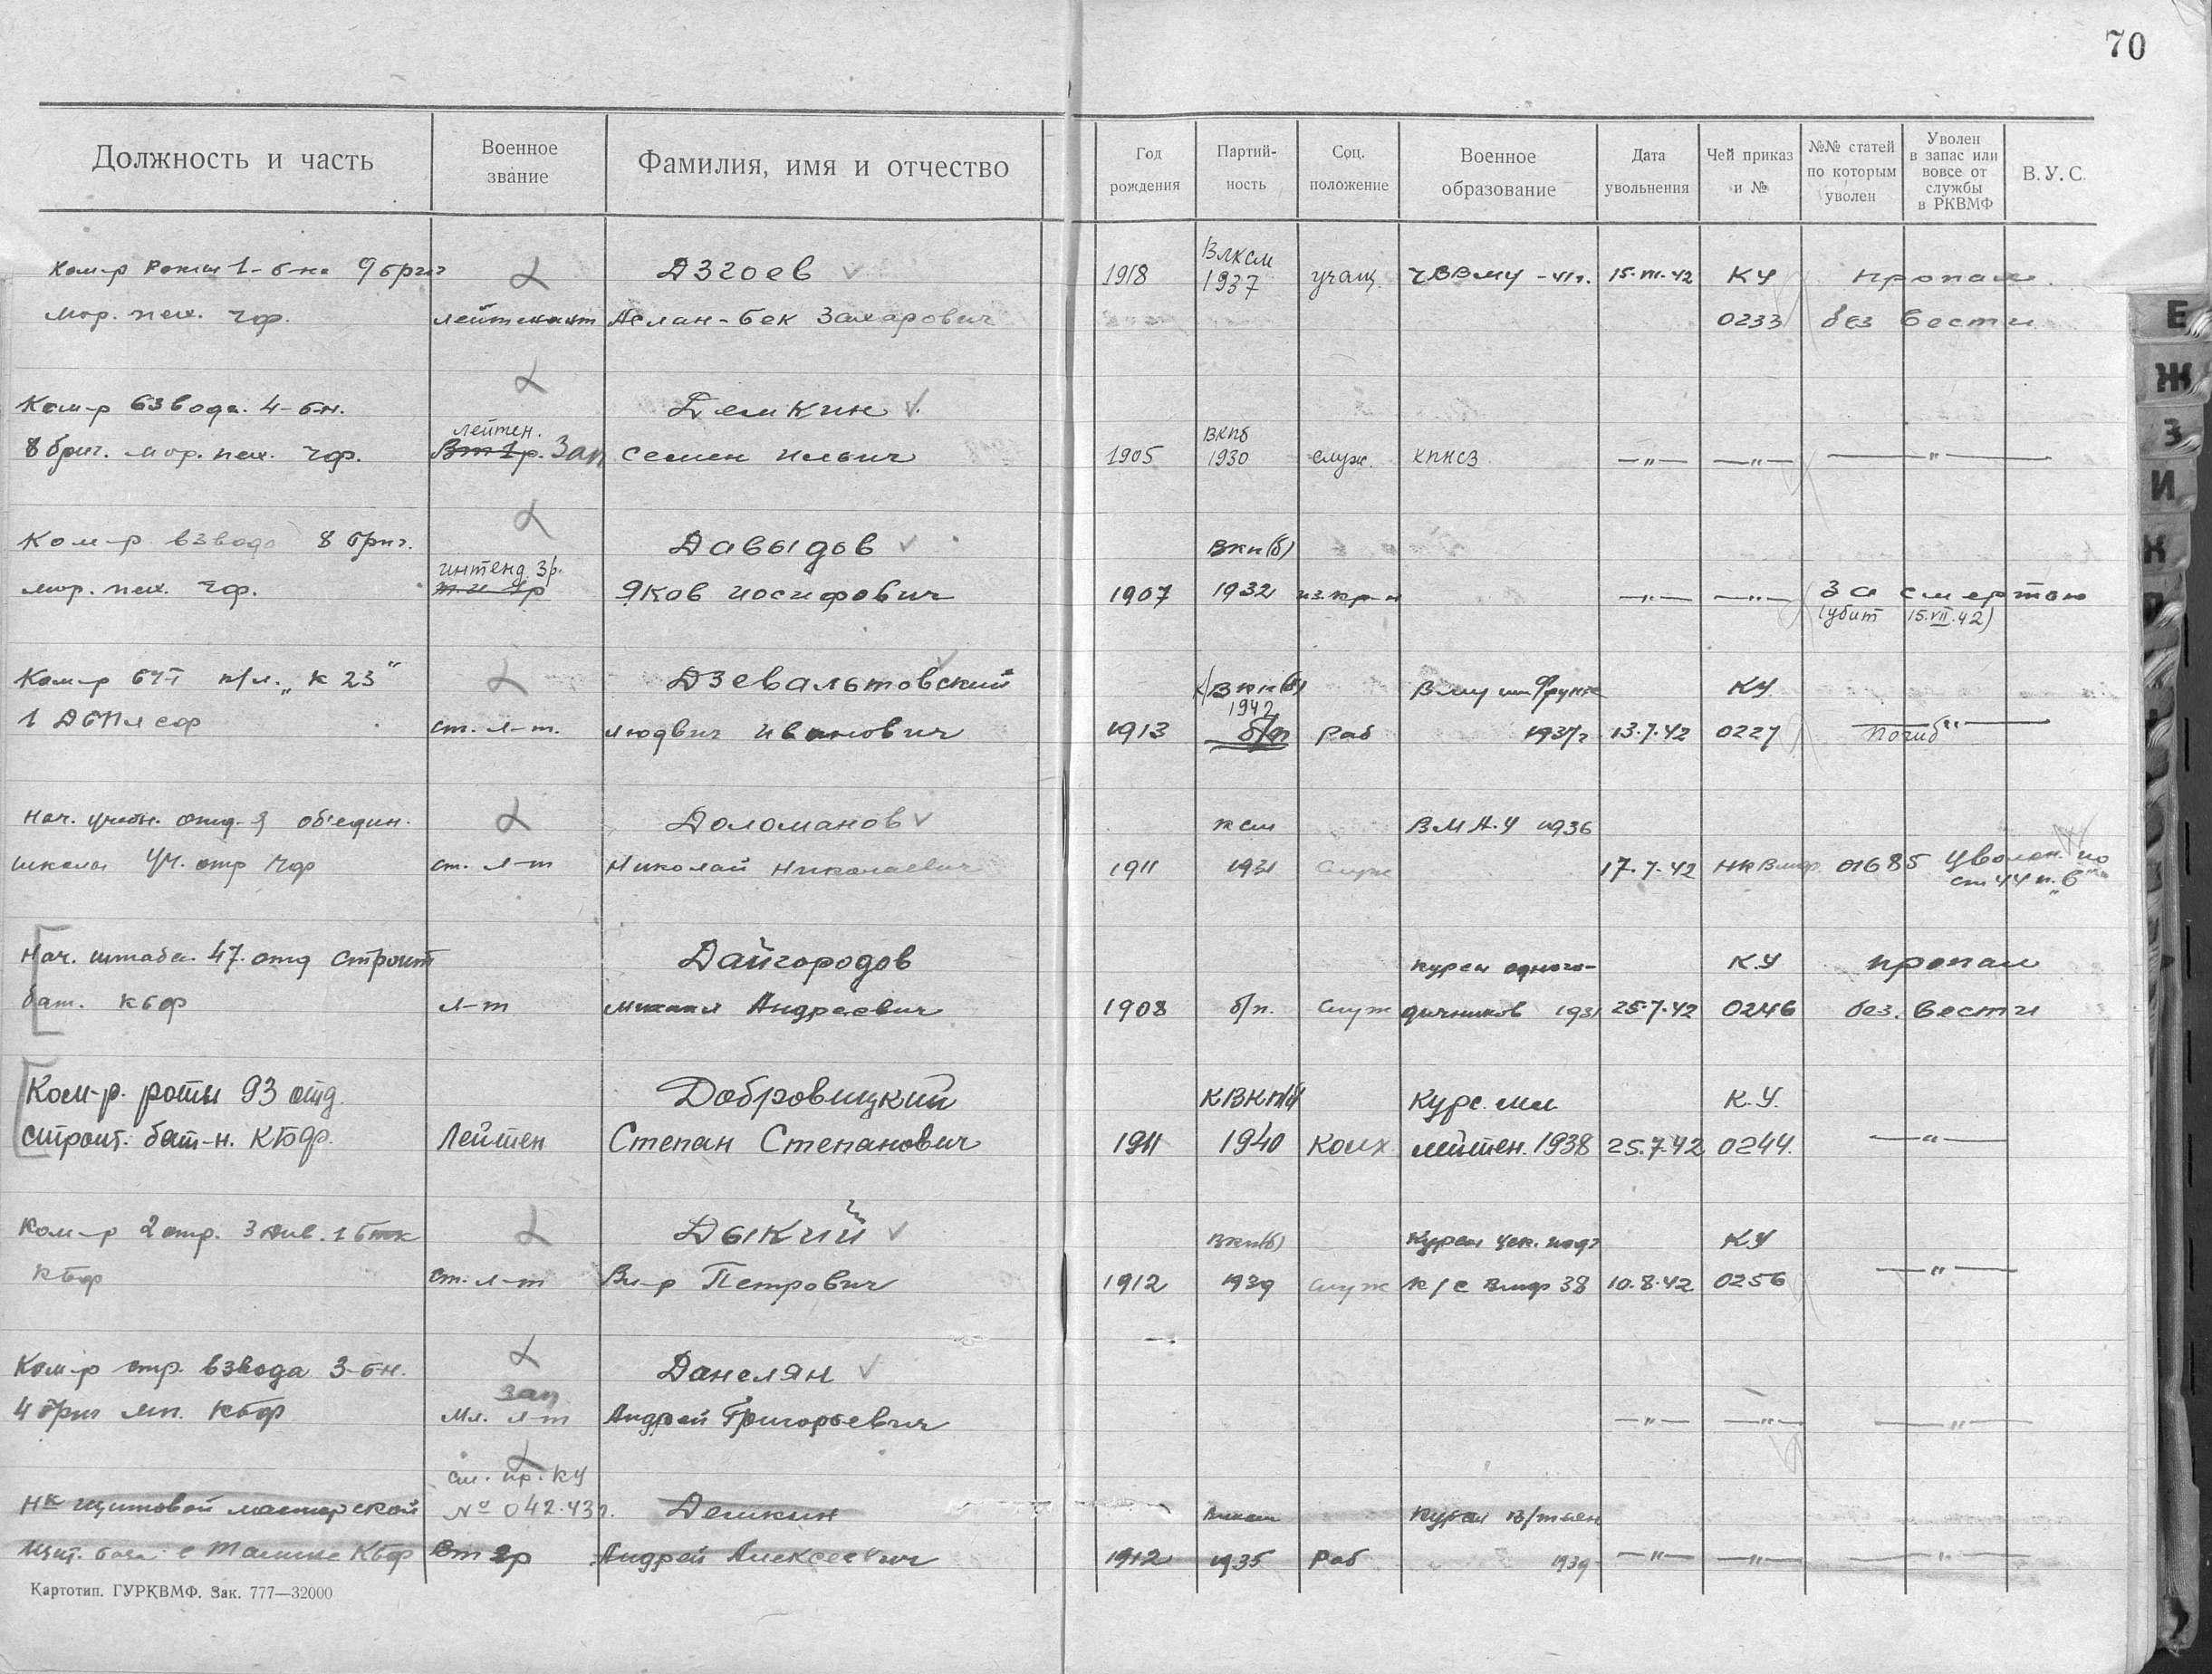 70
Должность и часть Военное звание Фамилия, имя и отчество Год рождения Партийность Соц. положение Военное образование Дата увольнения Чей приказ и № №№ статей по которым уволен Уволен в запас или вовсе от службы в РКВМФ В.У.С.
Ком-р роты 1-б-на 9 бриг Дзгоев 1918 ВЛКСМ 1937 учащ. ЧВВМУ -41г. 15.VII.42 КУ пропал
мор. пех. чф. лейтенант Аслан-бек Захарович 0233 без вести
Ком-р взвода 4-бн. Демкин
8 бриг. мор. пех. чф. лейтен. Зап Семен Ильич 1905 ВКПб 1930 служ. —"— —"— —"—
Ком-р взвода 8 бриг. Давыдов ВКП(б)
мор. пех. чф. интенд. 3р. Яков Иосифович 1907 1932 из кр-н —"— —"— За смертью
(убит 15.VII.42)
Ком-р БЧ-I п/л. „К 23" Дзевальтовский ВКП(б) ВМУ им Фрунзе КУ —"—
1942
ст. л-т. Людвиг Иванович 1913 б/п Раб 1937г 13.7.42 0227 погиб
Нач. учебн. отд-я об'един. Доломанов ксм 1936
школы Уч. отр ЧФ ст. л-т Николай Николаевич 1911 1931 Служ 17.7.42 НКВМФ 01685 Уволен по
ст 44 п. „в"
Нач. штаба 47 отд строит Дайгородов курсы одного- КУ пропал
бат. КБФ л-т Михаил Андреевич 1908 б/п. Служ дичников 1931 25.7.42 0246 без вести
Ком-р. роты 93 отд. Добровицкий КВКП(б) Курс. мл К.У.
строит. бат-н. КБФ. Лейтен Степан Степанович 1911 1940 Колх лейтен. 1938 25.7.42 0244. —"—
Ком-р 2 отр. 3 див. 1 бтк Дыкий ВКП(б) Курсы уск. подг КУ
КБФ ст. л-т Вл-р Петрович 1912 1939 Служ к/с ВМФ 38 10.8.42 0256 —"—
Ком-р стр. взвода 3-бн. Данелян
зап
4 бриг мп. КБФ Мл. л-т Андрей Григорьевич —"— —"— —"—
см. пр. КУ
Нк щитовой мастерской № 042-43г. Демкин Курсы
КБФ Вт 2р Андрей Алексеевич 1912 1935 Раб 1939 —"— —"— —"—
Картотип. ГУРКВМФ. Зак. 777—32000
Е
Ж
З
И
К